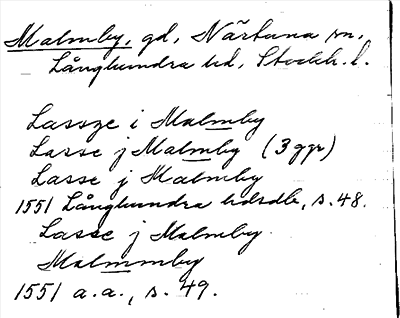 Malmby, gd, Närtuna sn,
Långhundra hd, Stockh. l.
Lassze i Malmby
Lasse j Malmby (3 ggr)
Lasse j Malmby
1551 Långhundra hdsdb, s. 48.
Lasse j Malmby
Malmmby
1551 a.a., s. 49.